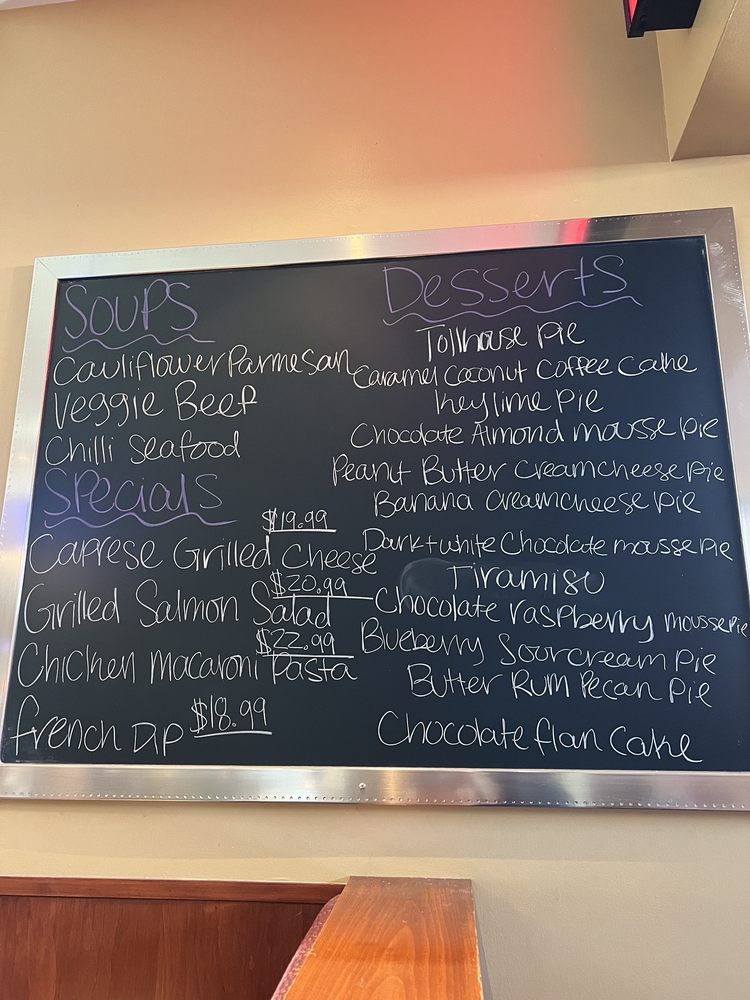 Soups
Cauliflower Parmesan
Veggie Beef
Chilli Seafood
Specials
$19.99
Caprese Grilled Cheese
$20.99
Grilled Salmon Salad
$22.99
Chicken macaroni Pasta
french Dip $18.99
Desserts
Tollhouse pie
Caramel Coconut Coffee Cake
Keylime Pie
Chocolate Almond mousse pie
Peanut Butter Creamcheese pie
Banana Creamcheese pie
Dark+white Chocolate mousse pie
Tiramisu
Chocolate raspberry mousse pie
Blueberry Sourcream pie
Butter Rum Pecan pie
Chocolate flan Cake